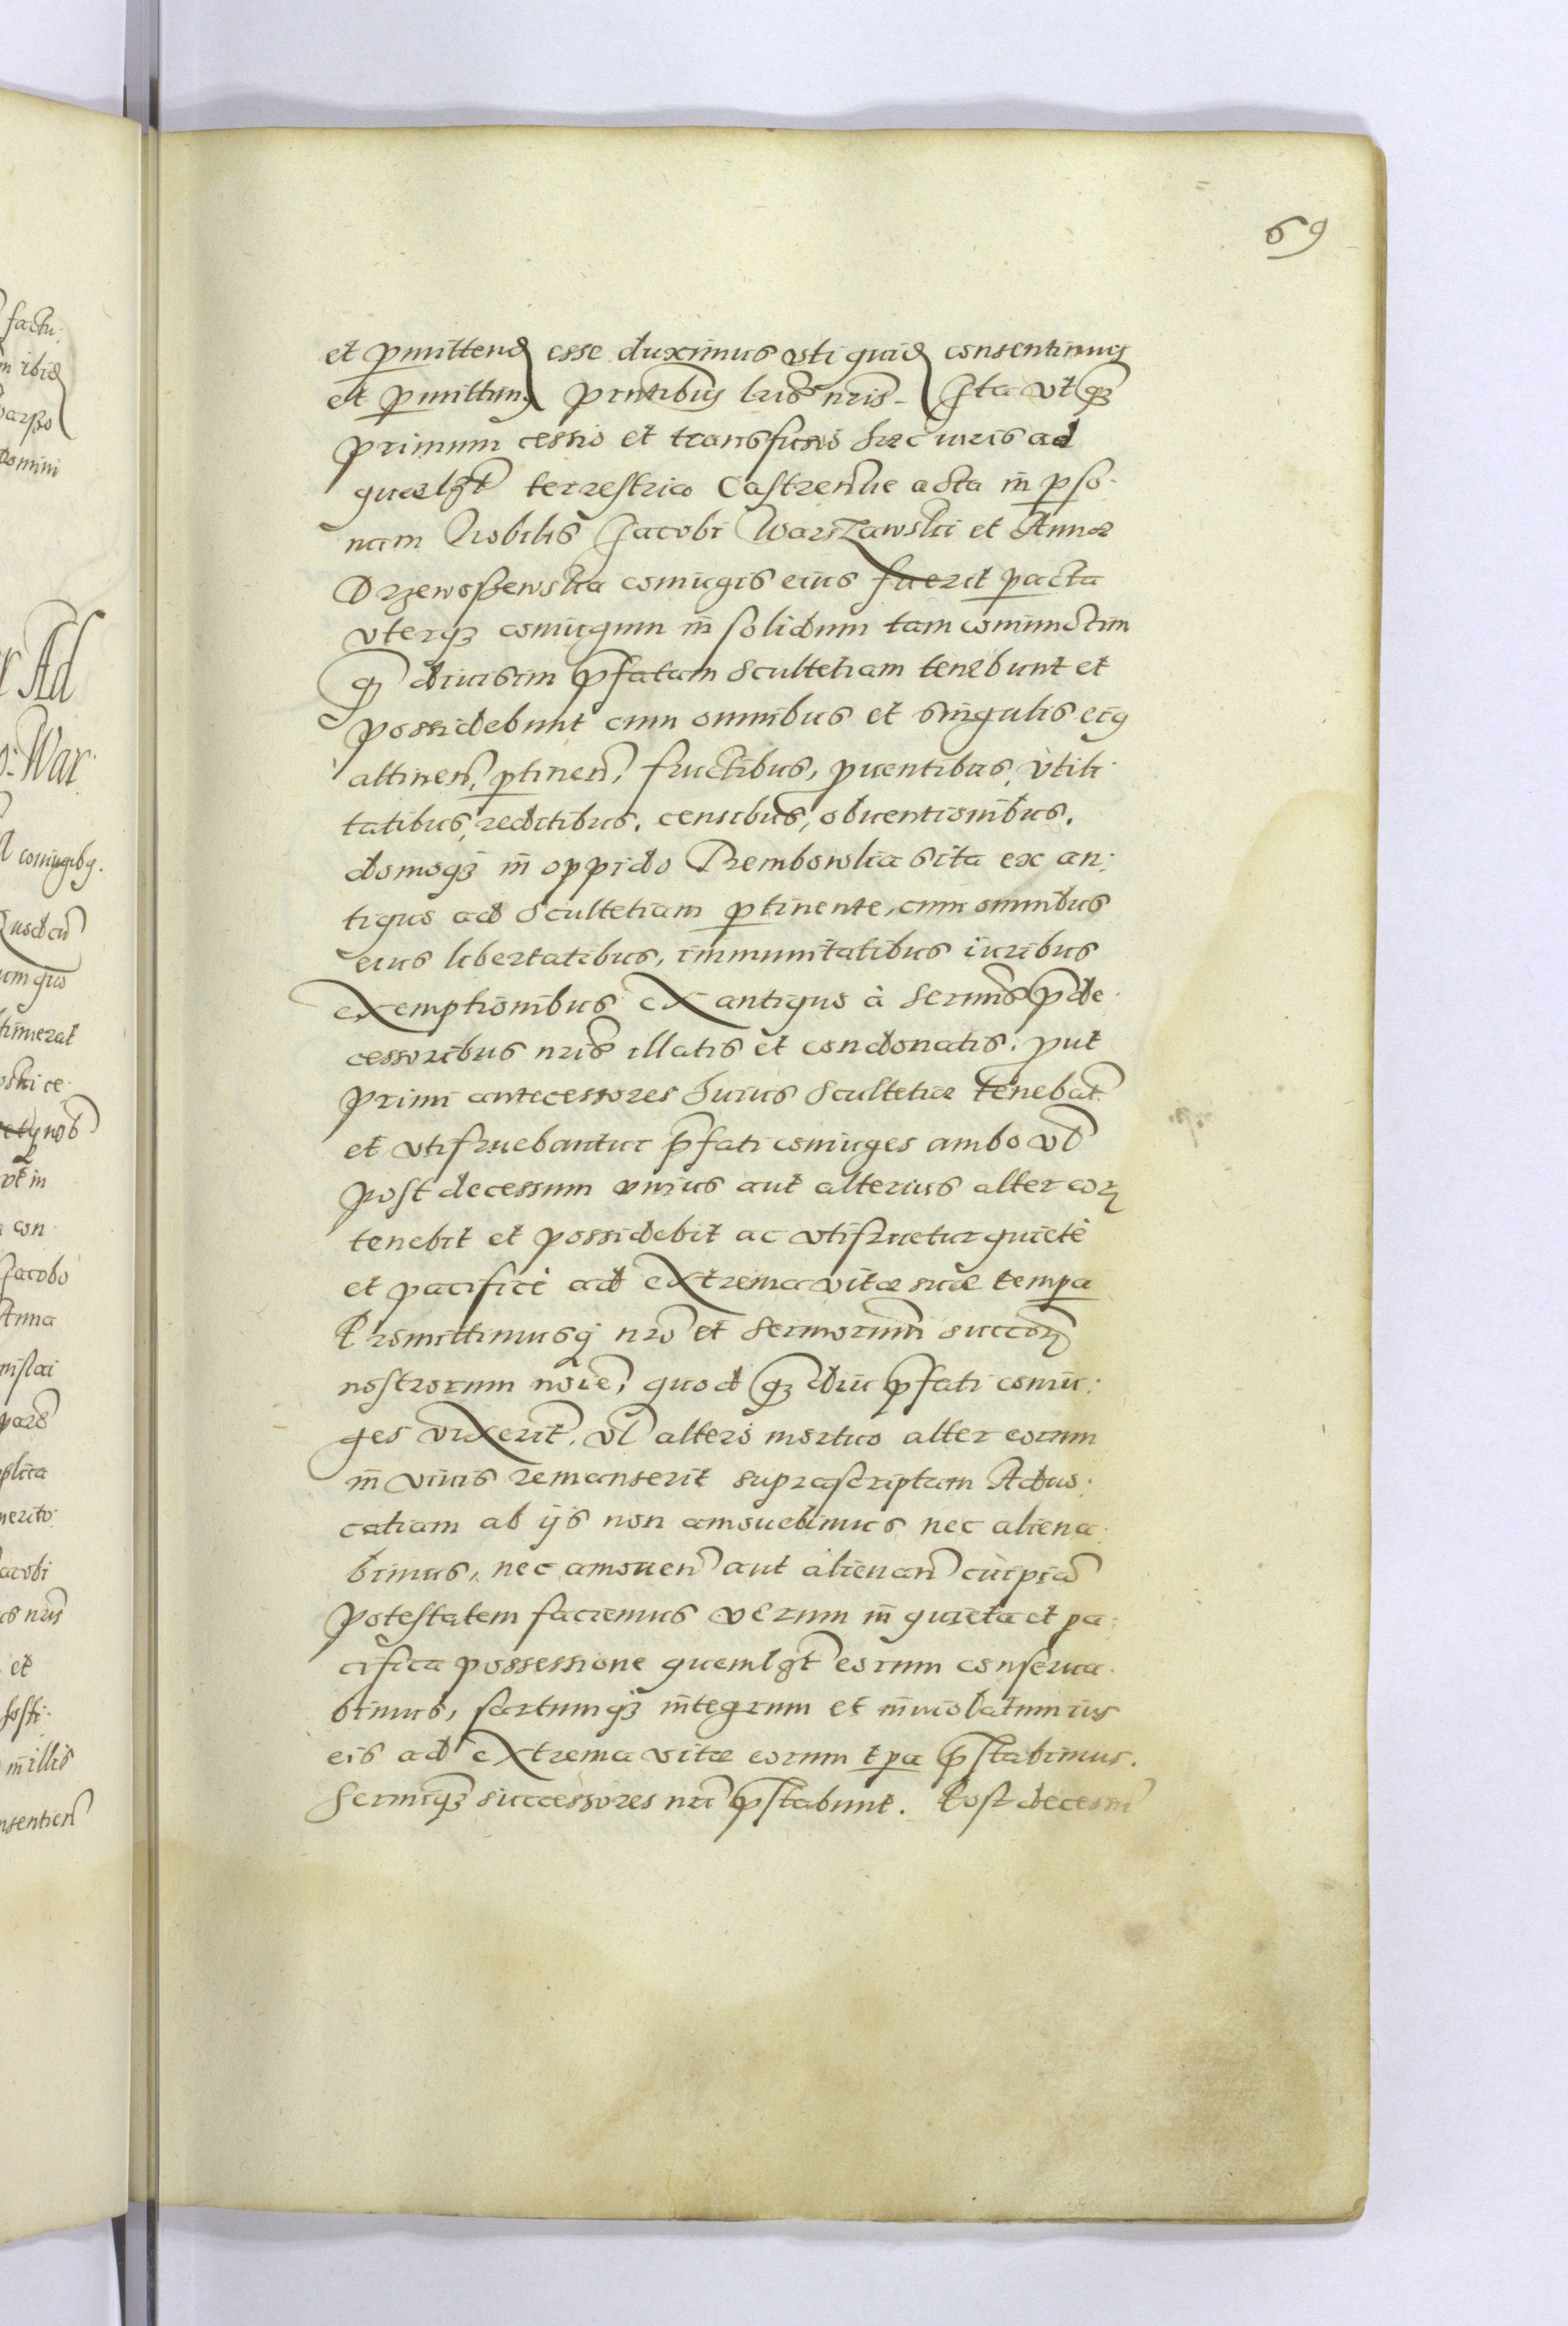 69
et pmittend esse duximus uti quid consentimus
et pmittimus pntibus lris nris. Ita vt qz
primum cessio et transfusio haec iuris ad
quaelqt terrestria Castrenve acta in pso.
nam Nobilis Jacobi Warszawski et Annae
Drzewoszewska coniugis eius fuerit pacta
vterqz coniugum in solidum tam coniunctim
q divisim pfatam scultetiam tenebunt et
possidebunt cum omnibus et singulis eius
attinen, ptinen, fructibus, pventibus, vtili.
tatibus, reditibus, censibus, obventionibus.
domoqz in oppido Trembowlia sita ex an:
tiquo ad Scultetiam ptinente, cum omnibus
eius libertatibus, immunitatibus iuribus
exemptionibus ex antiquo à Sermis pde.
cessoribus nris illatis et condonatis. put
primi antecessores huius Scultetiae tenebat
et vtifruebantur pfati coniuges ambo vl
post decessum vnius aut alterius alter eorz
tenebit et possidebit ac vtifruetur quietè
et pacificè ad extrema vitae suae tempa
Promittimusqz nro et Sermorum succorz
nostrorum noie, quod qz diu pfati coniu:
ges vixerit, vl altero mortuo alter eorum
in vivis remanserit suprascriptam Advo:
catiam ab ijs non amovebimus nec aliena.
bimus, nec amoven aut alienan cuipia
potestatem faciemus verum in quieta et pa:
cifica possessione quemlqt eorum conserva.
bimus, sartumqz integrum et inviolatum ius
eis ad extrema vitae eorum tpa pstabimus.
Sermiqz successores nri pstabunt. Post decessu
factu:
ibid
domini
Ad
War
coniugibq.
um quo
et in
con
Jacobo
Anna
et
in illis